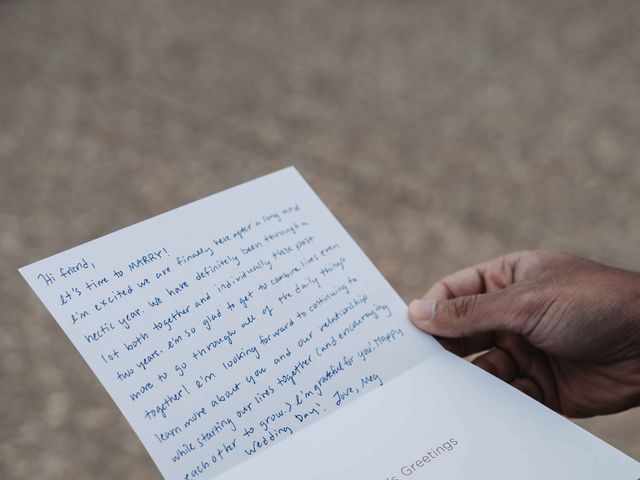 Hi friend,
Let's time to MARRY!
I'm excited we are finally here after a long and
hectic year. We have definitely been through a
lot both together and individually these past
two years. I'm so glad to get to combine lives even
more to go through all of the daily things
together! I'm looking forward to continuing to
learn more about you and our relationship
while starting our lives together (and encouraging
each other to grow.) I'm grateful for you! Happy
Wedding Day! Love, Meg
s Greetings